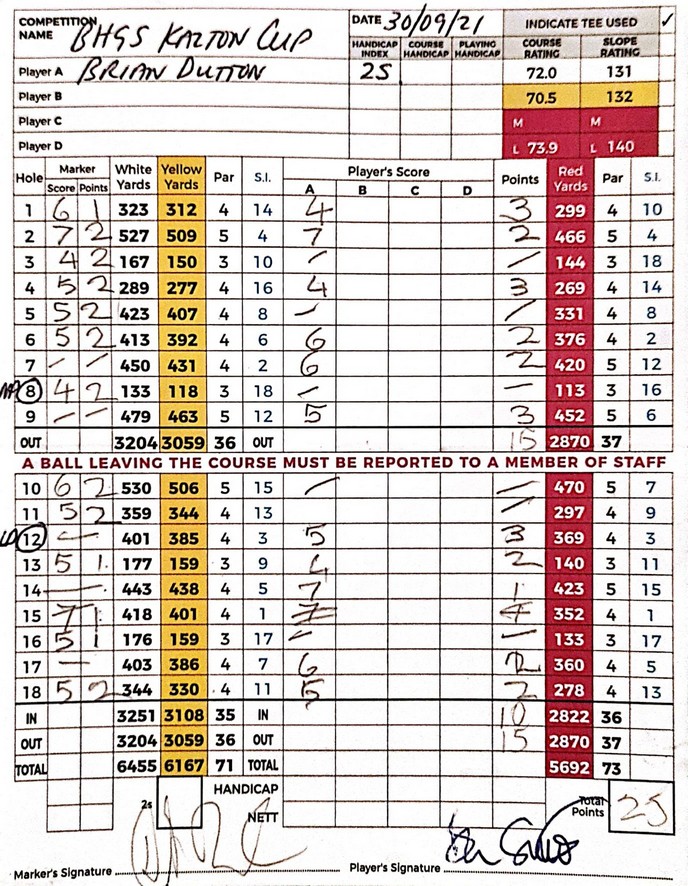 COMPETITION NAME BHGS KALTON CUP DATE 30/09/21 INDICATE TEE USED ✓
HANDICAP INDEX COURSE HANDICAP PLAYING HANDICAP COURSE RATING SLOPE RATING
Player A BRIAN DUTTON 25 72.0 131
Player B 70.5 132
Player C M M
Player D L 73.9 L 140
Hole Marker White Yards Yellow Yards Par S.I. Player's Score Points Red Yards Par S.I.
Score Points A B C D
1 6 1 323 312 4 14 4 3 299 4 10
2 7 2 527 509 5 4 7 2 466 5 4
3 4 2 167 150 3 10 / / 144 3 18
4 5 2 289 277 4 16 4 3 269 4 14
5 5 2 423 407 4 8 / / 331 4 8
6 5 2 413 392 4 6 6 2 376 4 2
7 / / 450 431 4 2 6 2 420 5 12
8 4 2 133 118 3 18 / — 113 3 16
9 — — 479 463 5 12 5 3 452 5 6
OUT 3204 3059 36 OUT 15 2870 37
A BALL LEAVING THE COURSE MUST BE REPORTED TO A MEMBER OF STAFF
10 6 2 530 506 5 15 / — 470 5 7
11 5 2 359 344 4 13 / 297 4 9
LD 12 — 401 385 4 3 5 3 369 4 3
13 5 1 177 159 3 9 4 2 140 3 11
14 — 443 438 4 5 7 1 423 5 15
15 7 1 418 401 4 1 352 4 1
16 5 1 176 159 3 17 / — 133 3 17
17 — 403 386 4 7 6 2 360 4 5
18 5 2 344 330 4 11 5 2 278 4 13
IN 3251 3108 35 IN 10 2822 36
OUT 3204 3059 36 OUT 15 2870 37
TOTAL 6455 6167 71 TOTAL 5692 73
2s HANDICAP Total Points 25
NETT
Marker's Signature Player's Signature